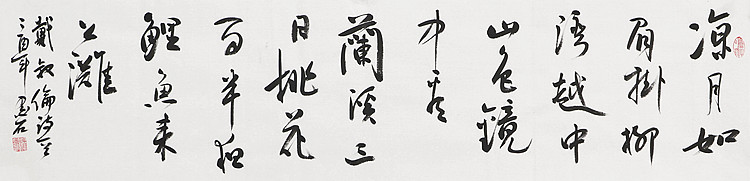 涼月如
眉掛柳
湾越中
山色鏡
中看
蘭溪三
日桃花
雨半夜
鯉魚来
上灘
戴叔倫诗
酉年